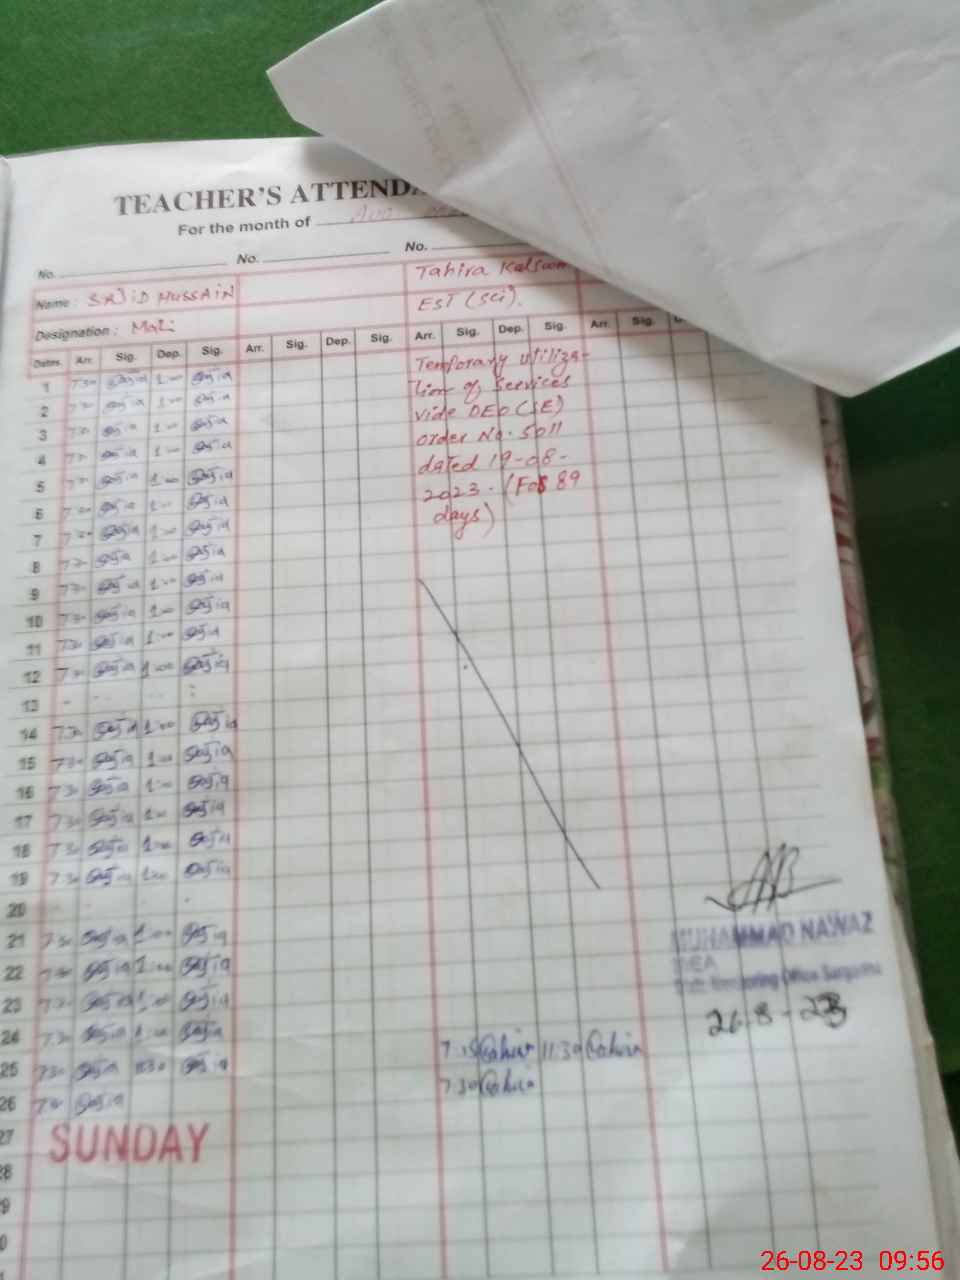 TEACHER'S ATTENDA
For the month of Aug
No. No. No.
Name : SAJiD HUSSAIN Tahira Kalsoom
Designation : Mali EST (Sci).
Dates Arr. Sig. Dep. Sig. Arr. Sig. Dep. Sig. Arr. Sig. Dep. Sig. Arr. Sig.
Temporary utiliza-
tion of Services
vide DEO (SE)
order No. 5011
dated 19-08-
2023. (For 89
days)
1 7:30 Sajid 1:00 Sajid
2 7:30 Sajid 1:00 Sajid
3 7:30 Sajid 1:00 Sajid
4 7:30 Sajid 1:00 Sajid
5 7:30 Sajid 1:00 Sajid
6 7:30 Sajid 1:00 Sajid
7 7:30 Sajid 1:00 Sajid
8 7:30 Sajid 1:00 Sajid
9 7:30 Sajid 1:00 Sajid
10 7:30 Sajid 1:00 Sajid
11 7:30 Sajid 1:00 Sajid
12 7:30 Sajid 1:00 Sajid
13
14 7:30 Sajid 1:00 Sajid
15 7:30 Sajid 1:00 Sajid
16 7:30 Sajid 1:00 Sajid
17 7:30 Sajid 1:00 Sajid
18 7:30 Sajid 1:00 Sajid
19 7:30 Sajid 1:00 Sajid
20
21 7:30 Sajid 1:00 Sajid
22 7:30 Sajid 1:00 Sajid
23 7:30 Sajid 1:00 Sajid
24 7:30 Sajid 1:00 Sajid
25 7:30 Sajid 11:30 Sajid 7:15 Tahira 11:30 Tahira
26 7:30 Sajid 7:30 Tahira
27 SUNDAY
28
MUHAMMAD NAWAZ
MEA
Monitoring Office Sargodha
26.8-23
26-08-23 09:56